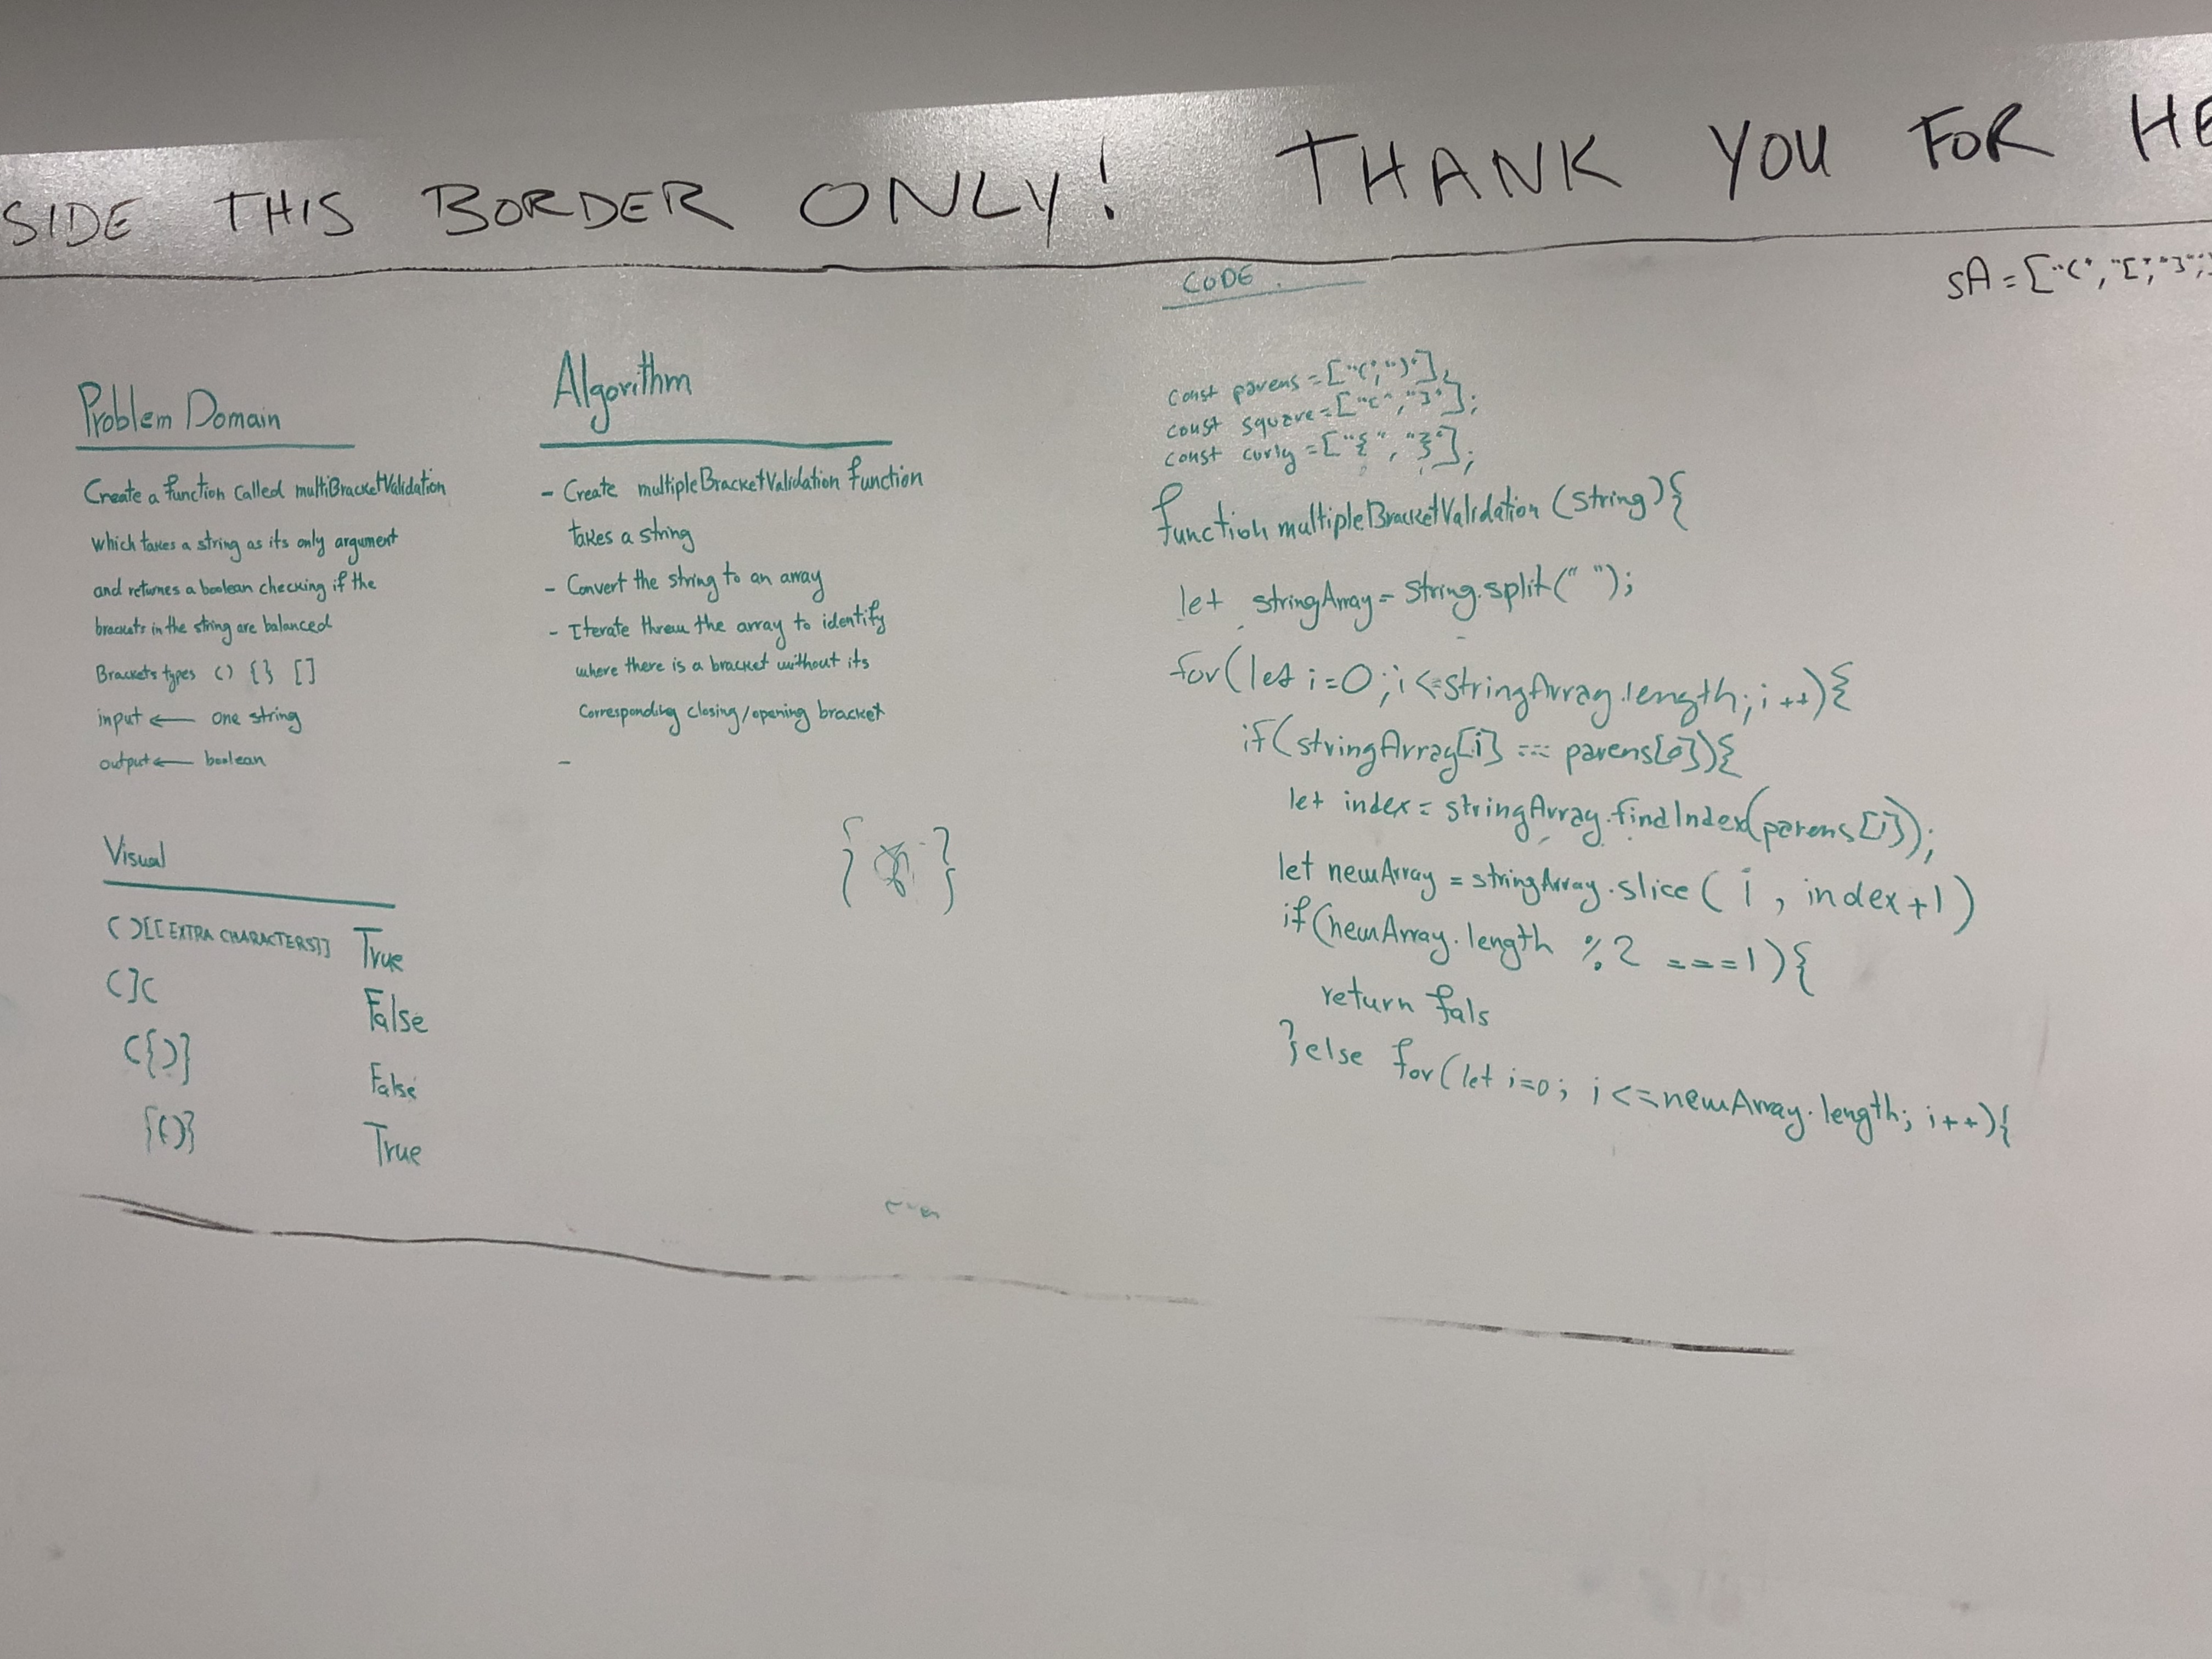 SIDE THIS BORDER ONLY! THANK YOU FOR HE
sA = ["(", "[", "]",
Problem Domain
Create a function called multiBracketValidation
which takes a string as its only argument
and returnes a boolean checking if the
brackets in the string are balanced
Brackets types () {} []
input ← one string
output ← boolean
Visual
()[[EXTRA CHARACTERS]] True
(]( False
({)} False
{()} True
Algorithm
- Create multipleBracketValidation function
takes a string
- Convert the string to an array
- Iterate threw the array to identify
where there is a bracket without its
corresponding closing/opening bracket
-
{ }
CODE.
const parens = ["(", ")"];
const square = ["[", "]"];
const curly = ["{", "}"];
function multipleBracketValidation (string){
let stringArray = string.split(" ");
for(let i=0; i<=stringArray.length; i++){
if(stringArray[i] === parens[0]){
let index = stringArray.findIndex(parens[1]);
let newArray = stringArray.slice( i , index+1)
if(newArray.length %2 ===1){
return fals
}else for(let i=0; i<=newArray.length; i++){